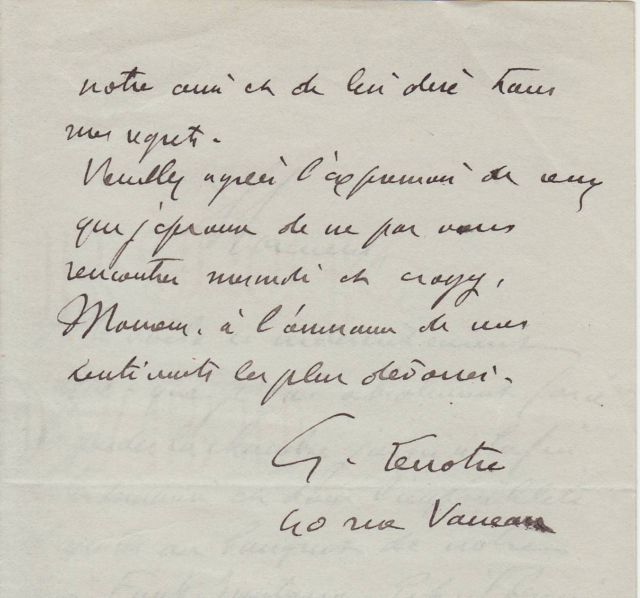 notre ami et de lui dire tous
mes regrets.
Veuillez agréer l'expression de ceux
que j'éprouve de ne pas vous
rencontrer mercredi et croyez,
Monsieur, à l'assurance de mes
sentiments les plus dévoués.
40 rue Vaneau